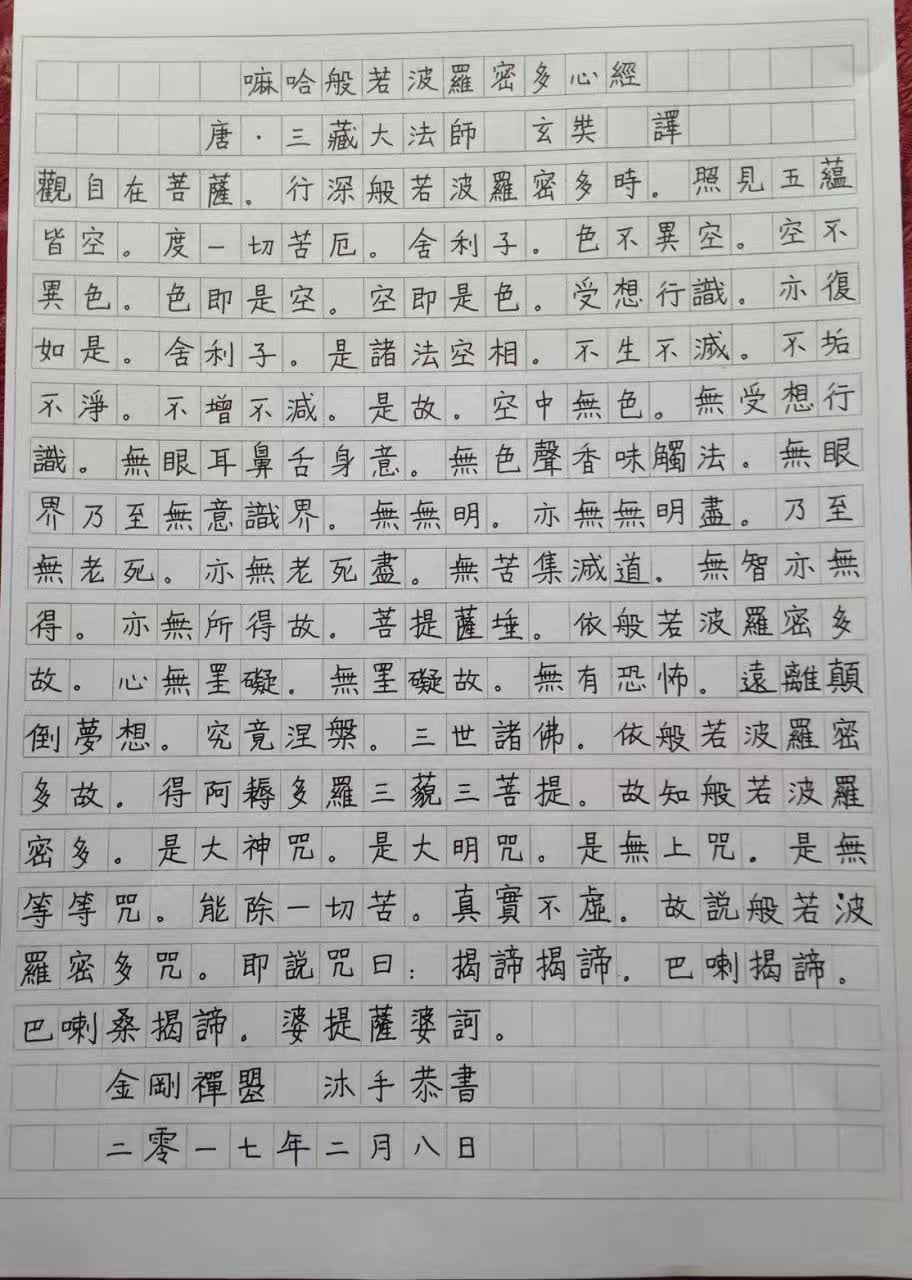 嘛哈般若波羅密多心經
唐·三藏大法師 玄奘 譯
觀自在菩薩。行深般若波羅密多時。照見五蘊
皆空。度一切苦厄。舍利子。色不異空。空不
異色。色即是空。空即是色。受想行識。亦復
如是。舍利子。是諸法空相。不生不滅。不垢
不淨。不增不減。是故。空中無色。無受想行
識。無眼耳鼻舌身意。無色聲香味觸法。無眼
界乃至無意識界。無無明。亦無無明盡。乃至
無老死。亦無老死盡。無苦集滅道。無智亦無
得。亦無所得故。菩提薩埵。依般若波羅密多
故。心無罣礙。無罣礙故。無有恐怖。遠離顛
倒夢想。究竟涅槃。三世諸佛。依般若波羅密
多故。得阿耨多羅三藐三菩提。故知般若波羅
密多。是大神咒。是大明咒。是無上咒。是無
等等咒。能除一切苦。真實不虛。故説般若波
羅密多咒。即説咒曰：揭諦揭諦。巴喇揭諦。
巴喇桑揭諦。婆提薩婆訶。
金剛禪曌 沐手恭書
二零一七年二月八日